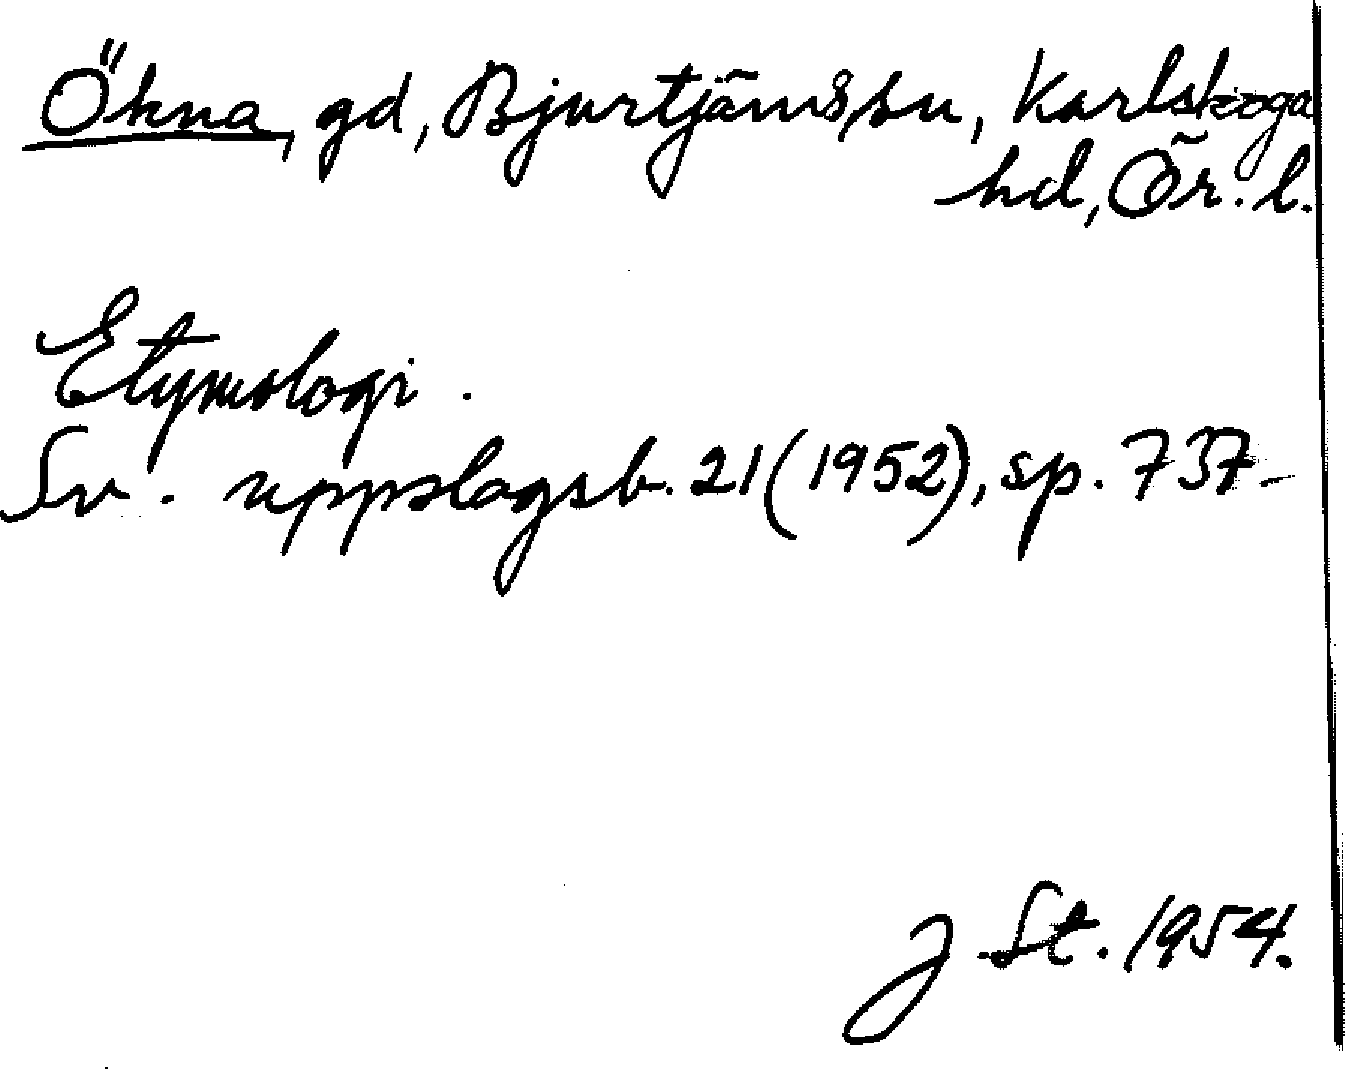 Ökna, gd, Bjurtjärns sn, Karlskoga
hd, Ör. l.
Etymologi.
Sv. uppslagsb. 21 (1952), sp. 737-
J. St. 1954.